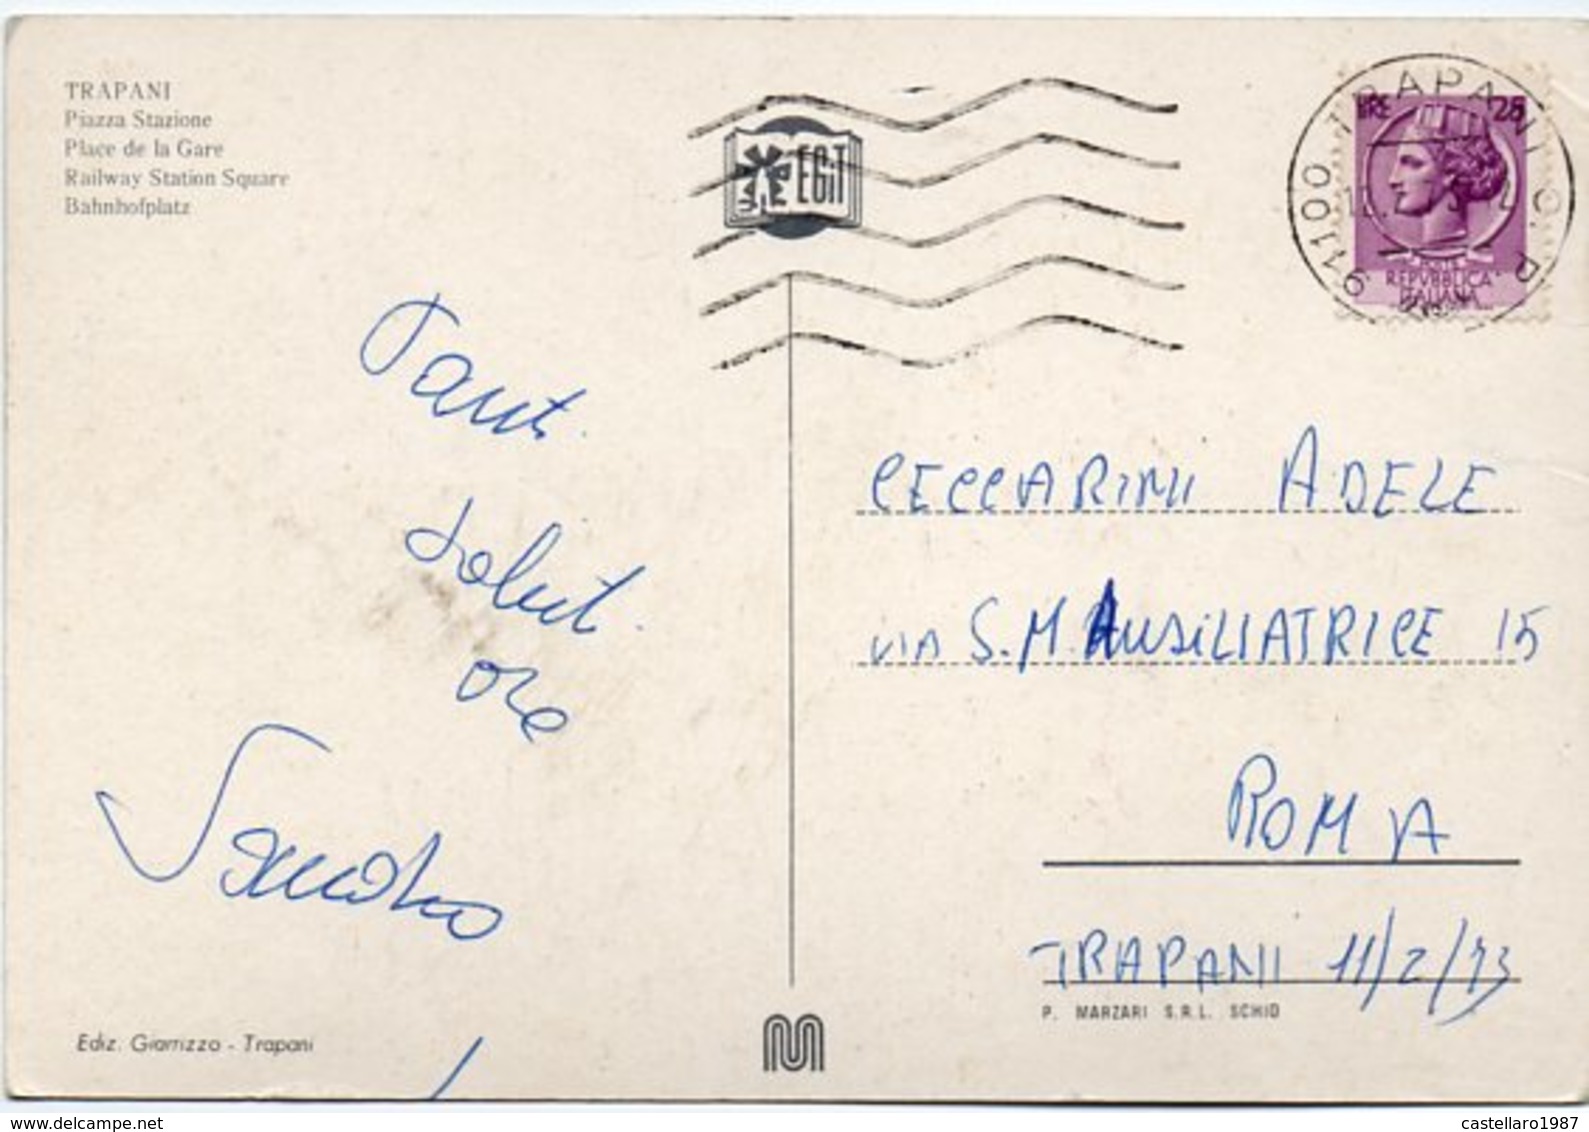 TRAPANI
Piazza Stazione
Place de la Gare
Railway Station Square
Bahnhofplatz
EGiT
91100 TRAPANI
LIRE 25
POSTE
REPVBBLICA
ITALIANA
Tanti
saluti
CECCARINI ADELE
VIA S.M. AUSILIATRICE 15
ROMA
TRAPANI 11/2/73
P. MARZARI S.R.L. SCHIO
Sandro
Ediz. Giarrizzo - Trapani
castellaro1987